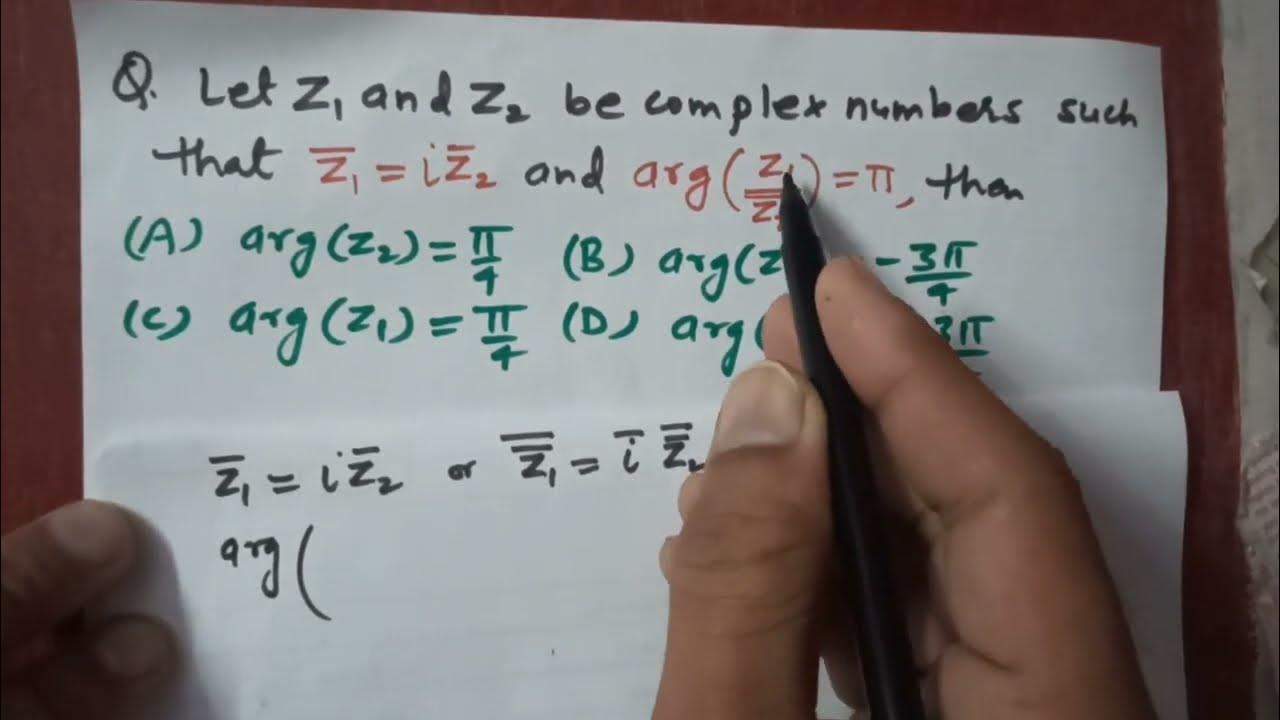 Q. Let Z₁ and Z₂ be complex numbers such
that z̅₁ = i z̅₂ and arg(z₁/z̅) = π, then
(A) arg(z₂) = π/4 (B) arg(z - 3π/4
(C) arg(z₁) = π/4 (D) arg( 3π
z̅₁ = i z̅₂ or z̿₁ = i̅ z̿₂
arg(